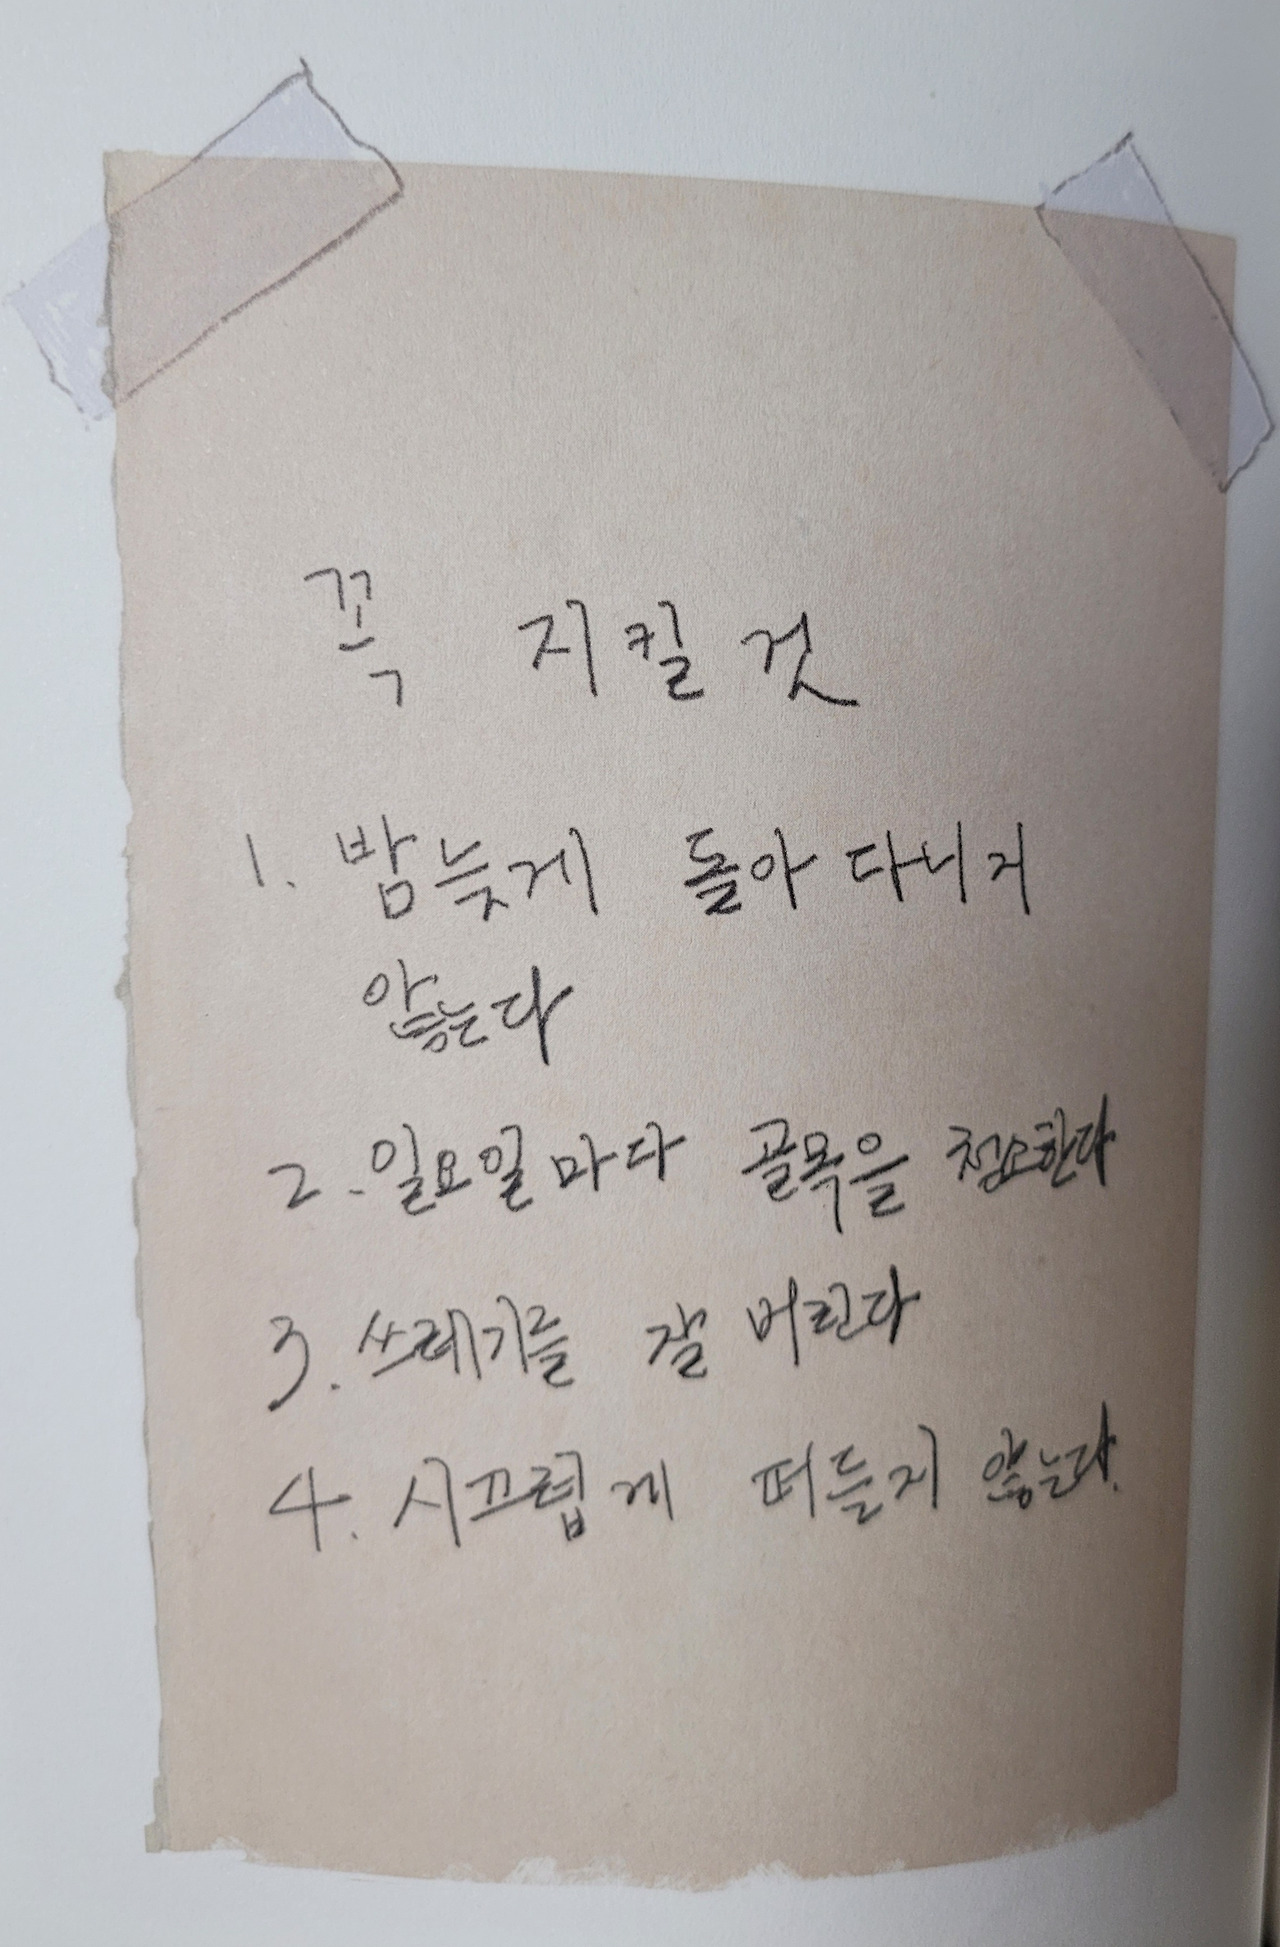 꼭 지킬 것
1. 밤늦게 돌아 다니지
않는다
2. 일요일마다 골목을 청소한다
3. 쓰레기를 잘 버린다
4. 시끄럽게 떠들지 않는다.